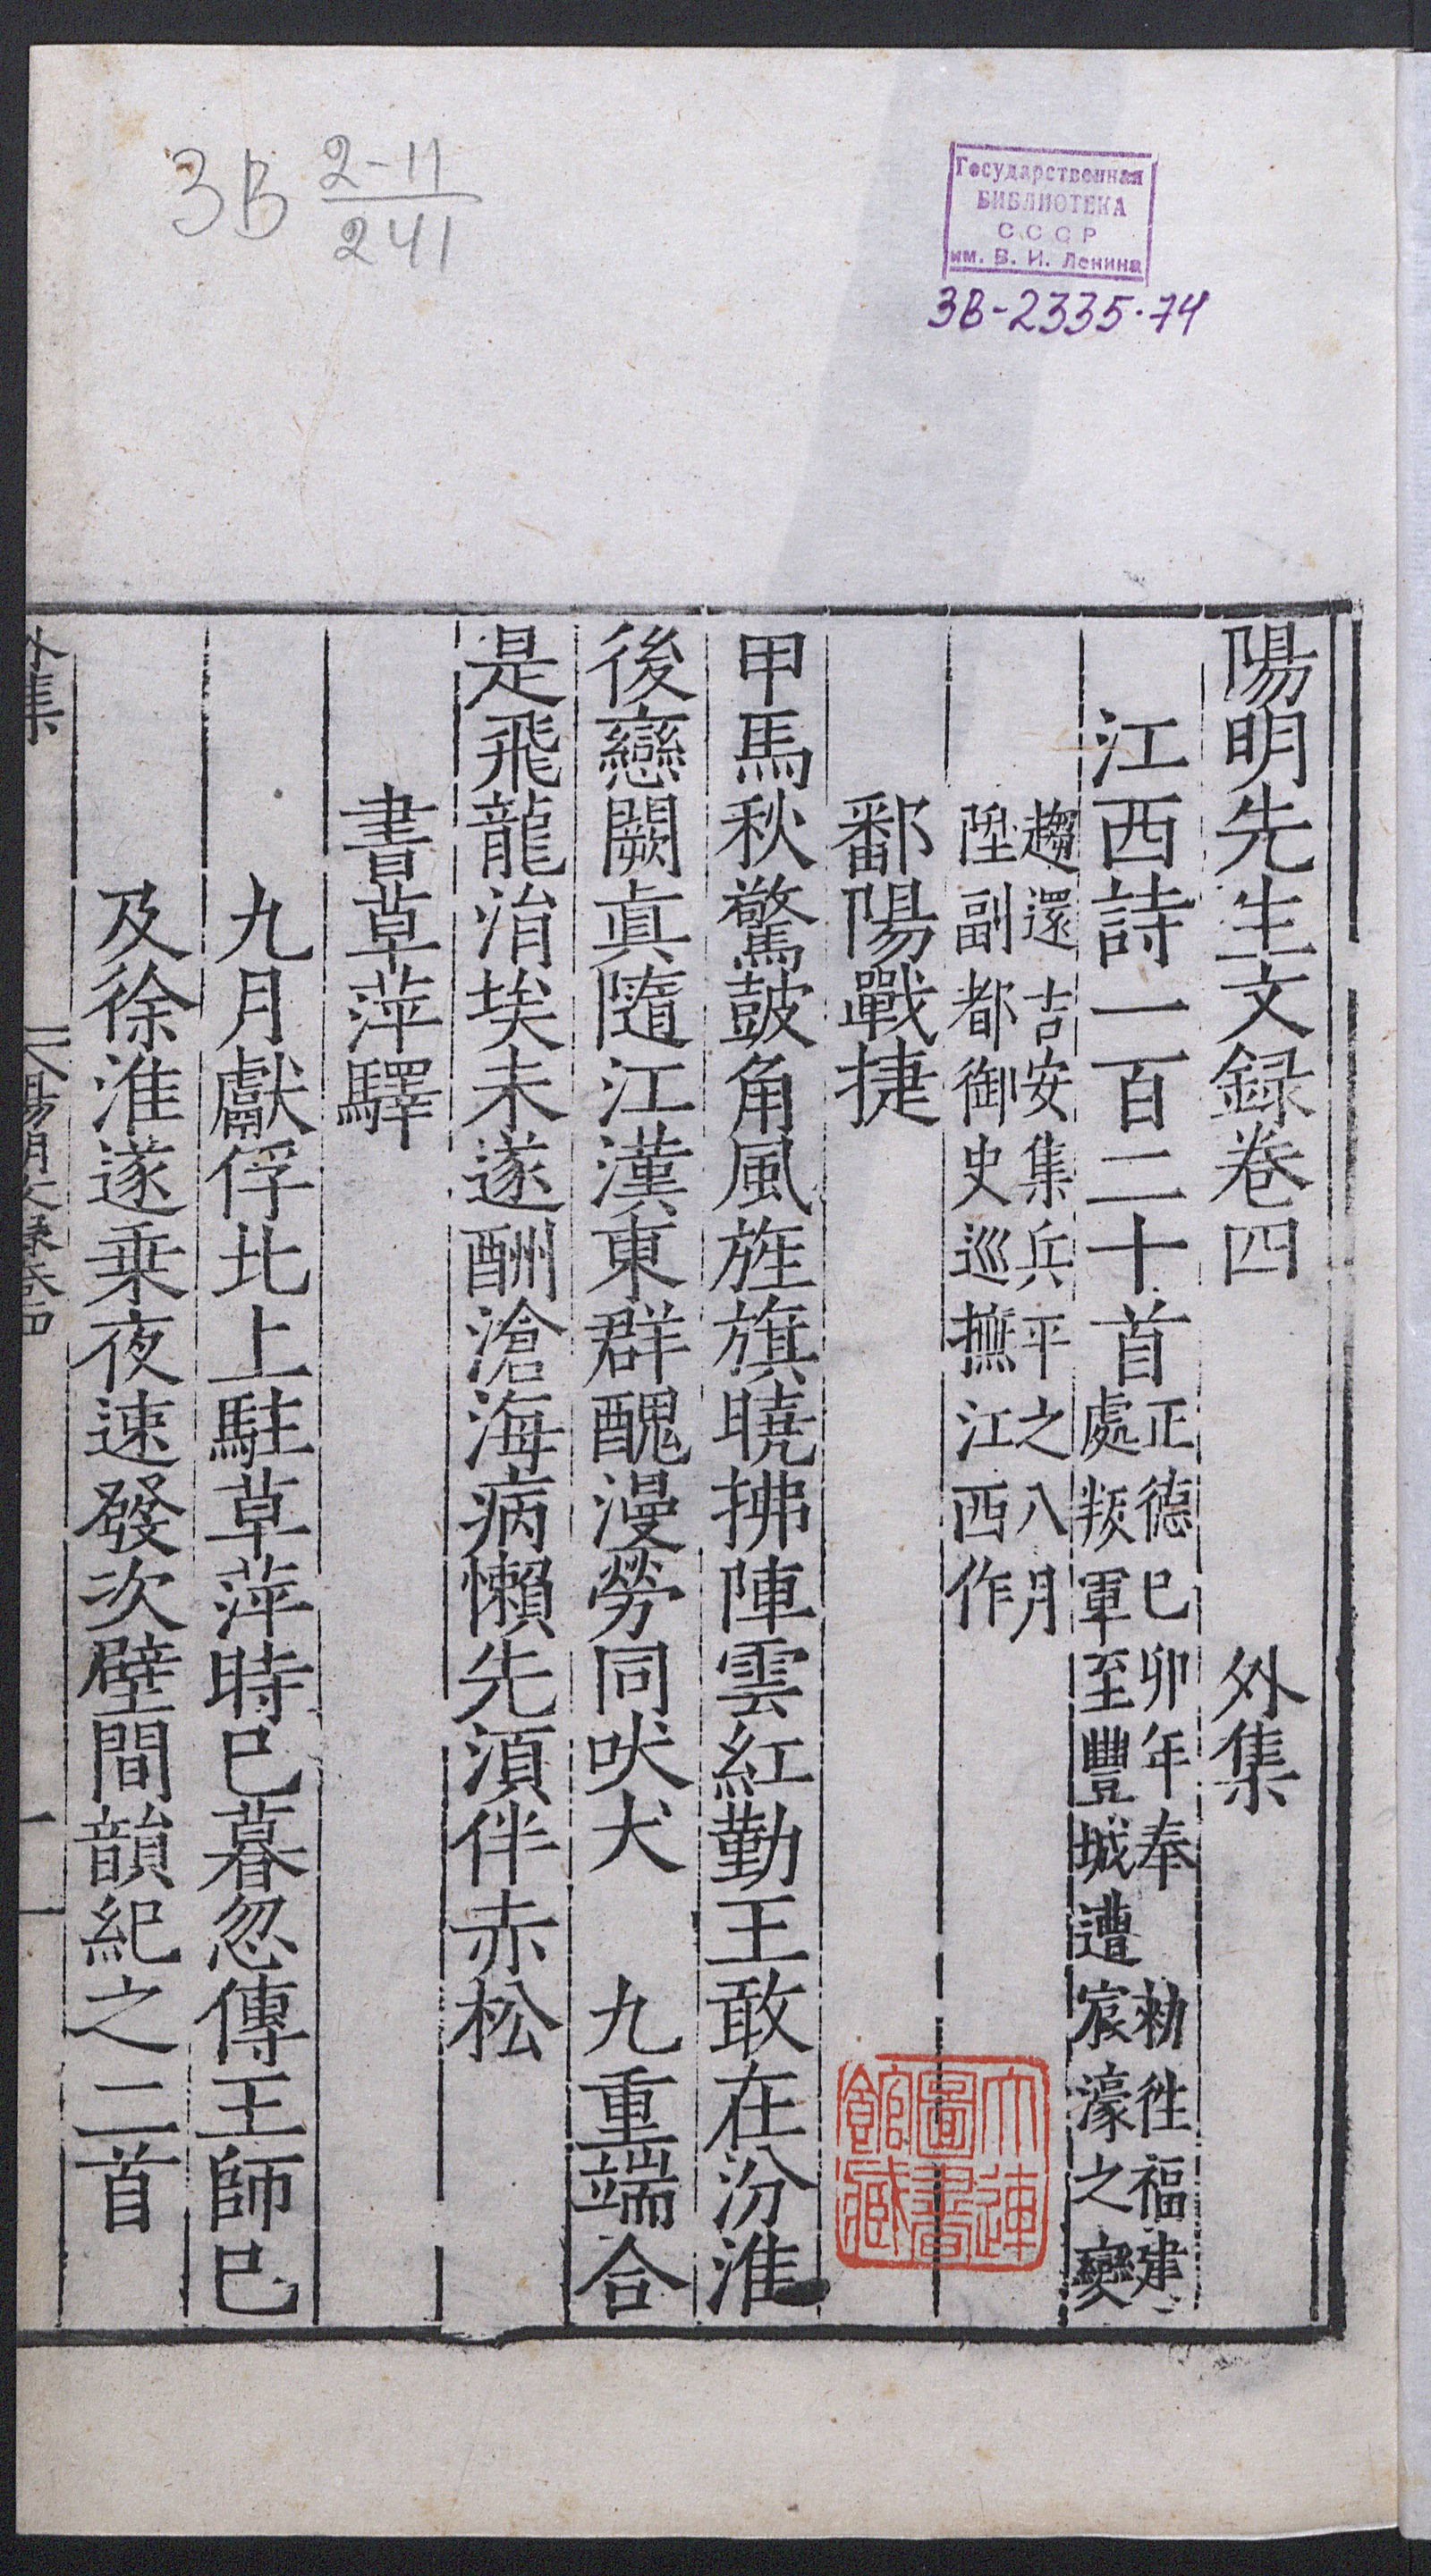 3В 2-11
241
Государственная
БИБЛИОТЕКА
СССР
им. В. И. Ленина
3В-2335·74
陽明先生文録卷四 外集
江西詩一百二十首
正德巳卯年奉 勑徃福建
處叛軍至豐城遭宸濠之變
趨還吉安集兵平之八月
陞副都御史巡撫江西作
鄱陽戰捷
甲馬秋驚鼓角風旌旗曉拂陣雲紅勤王敢在汾淮
後戀闕眞隨江漢東群醜漫勞同吠犬 九重端合
是飛龍涓埃未遂酬滄海病懶先湏伴赤松
書草萍驛
九月獻俘北上駐草萍時巳暮忽傳王師巳
及徐淮遂乗夜速發次壁間韻紀之二首
外集
陽明文録卷四
一
大連
圖書
館藏